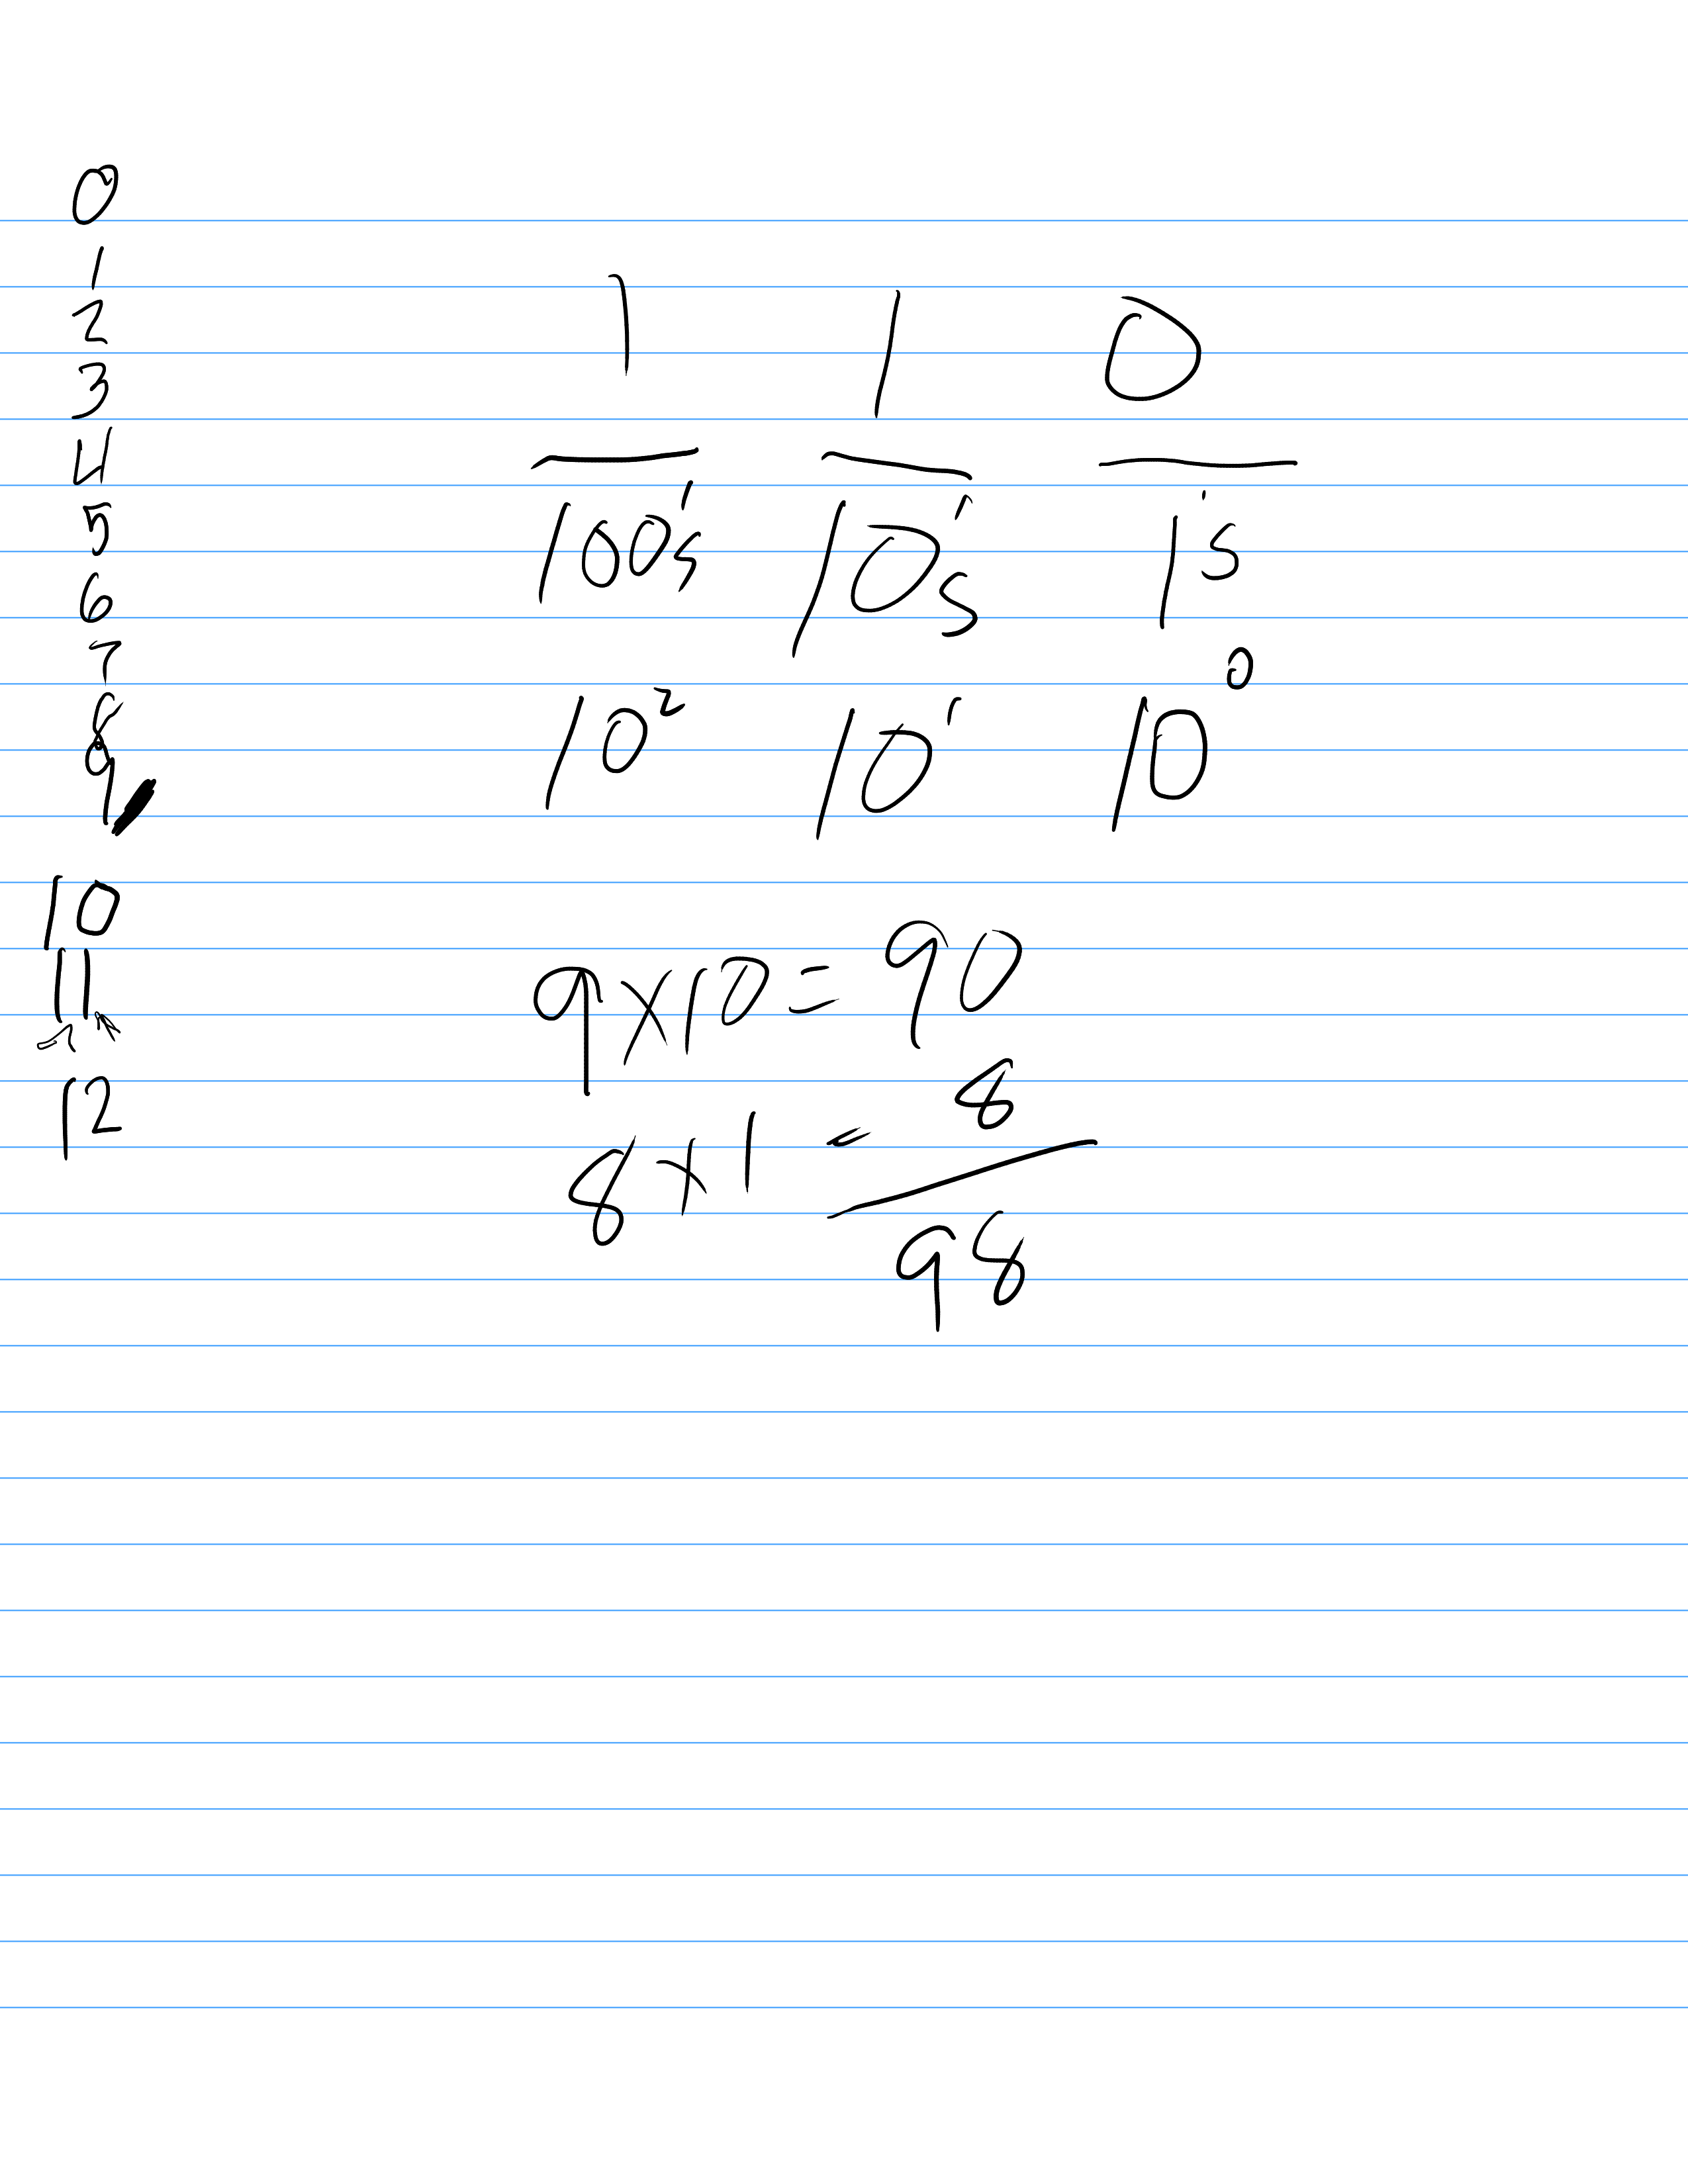 0
1
2
3
4
5
6
7
8
9
10
11
12
1 1 0
100's 10's 1's
10² 10¹ 10⁰
9 x 10 = 90
8 x 1 = 8
98